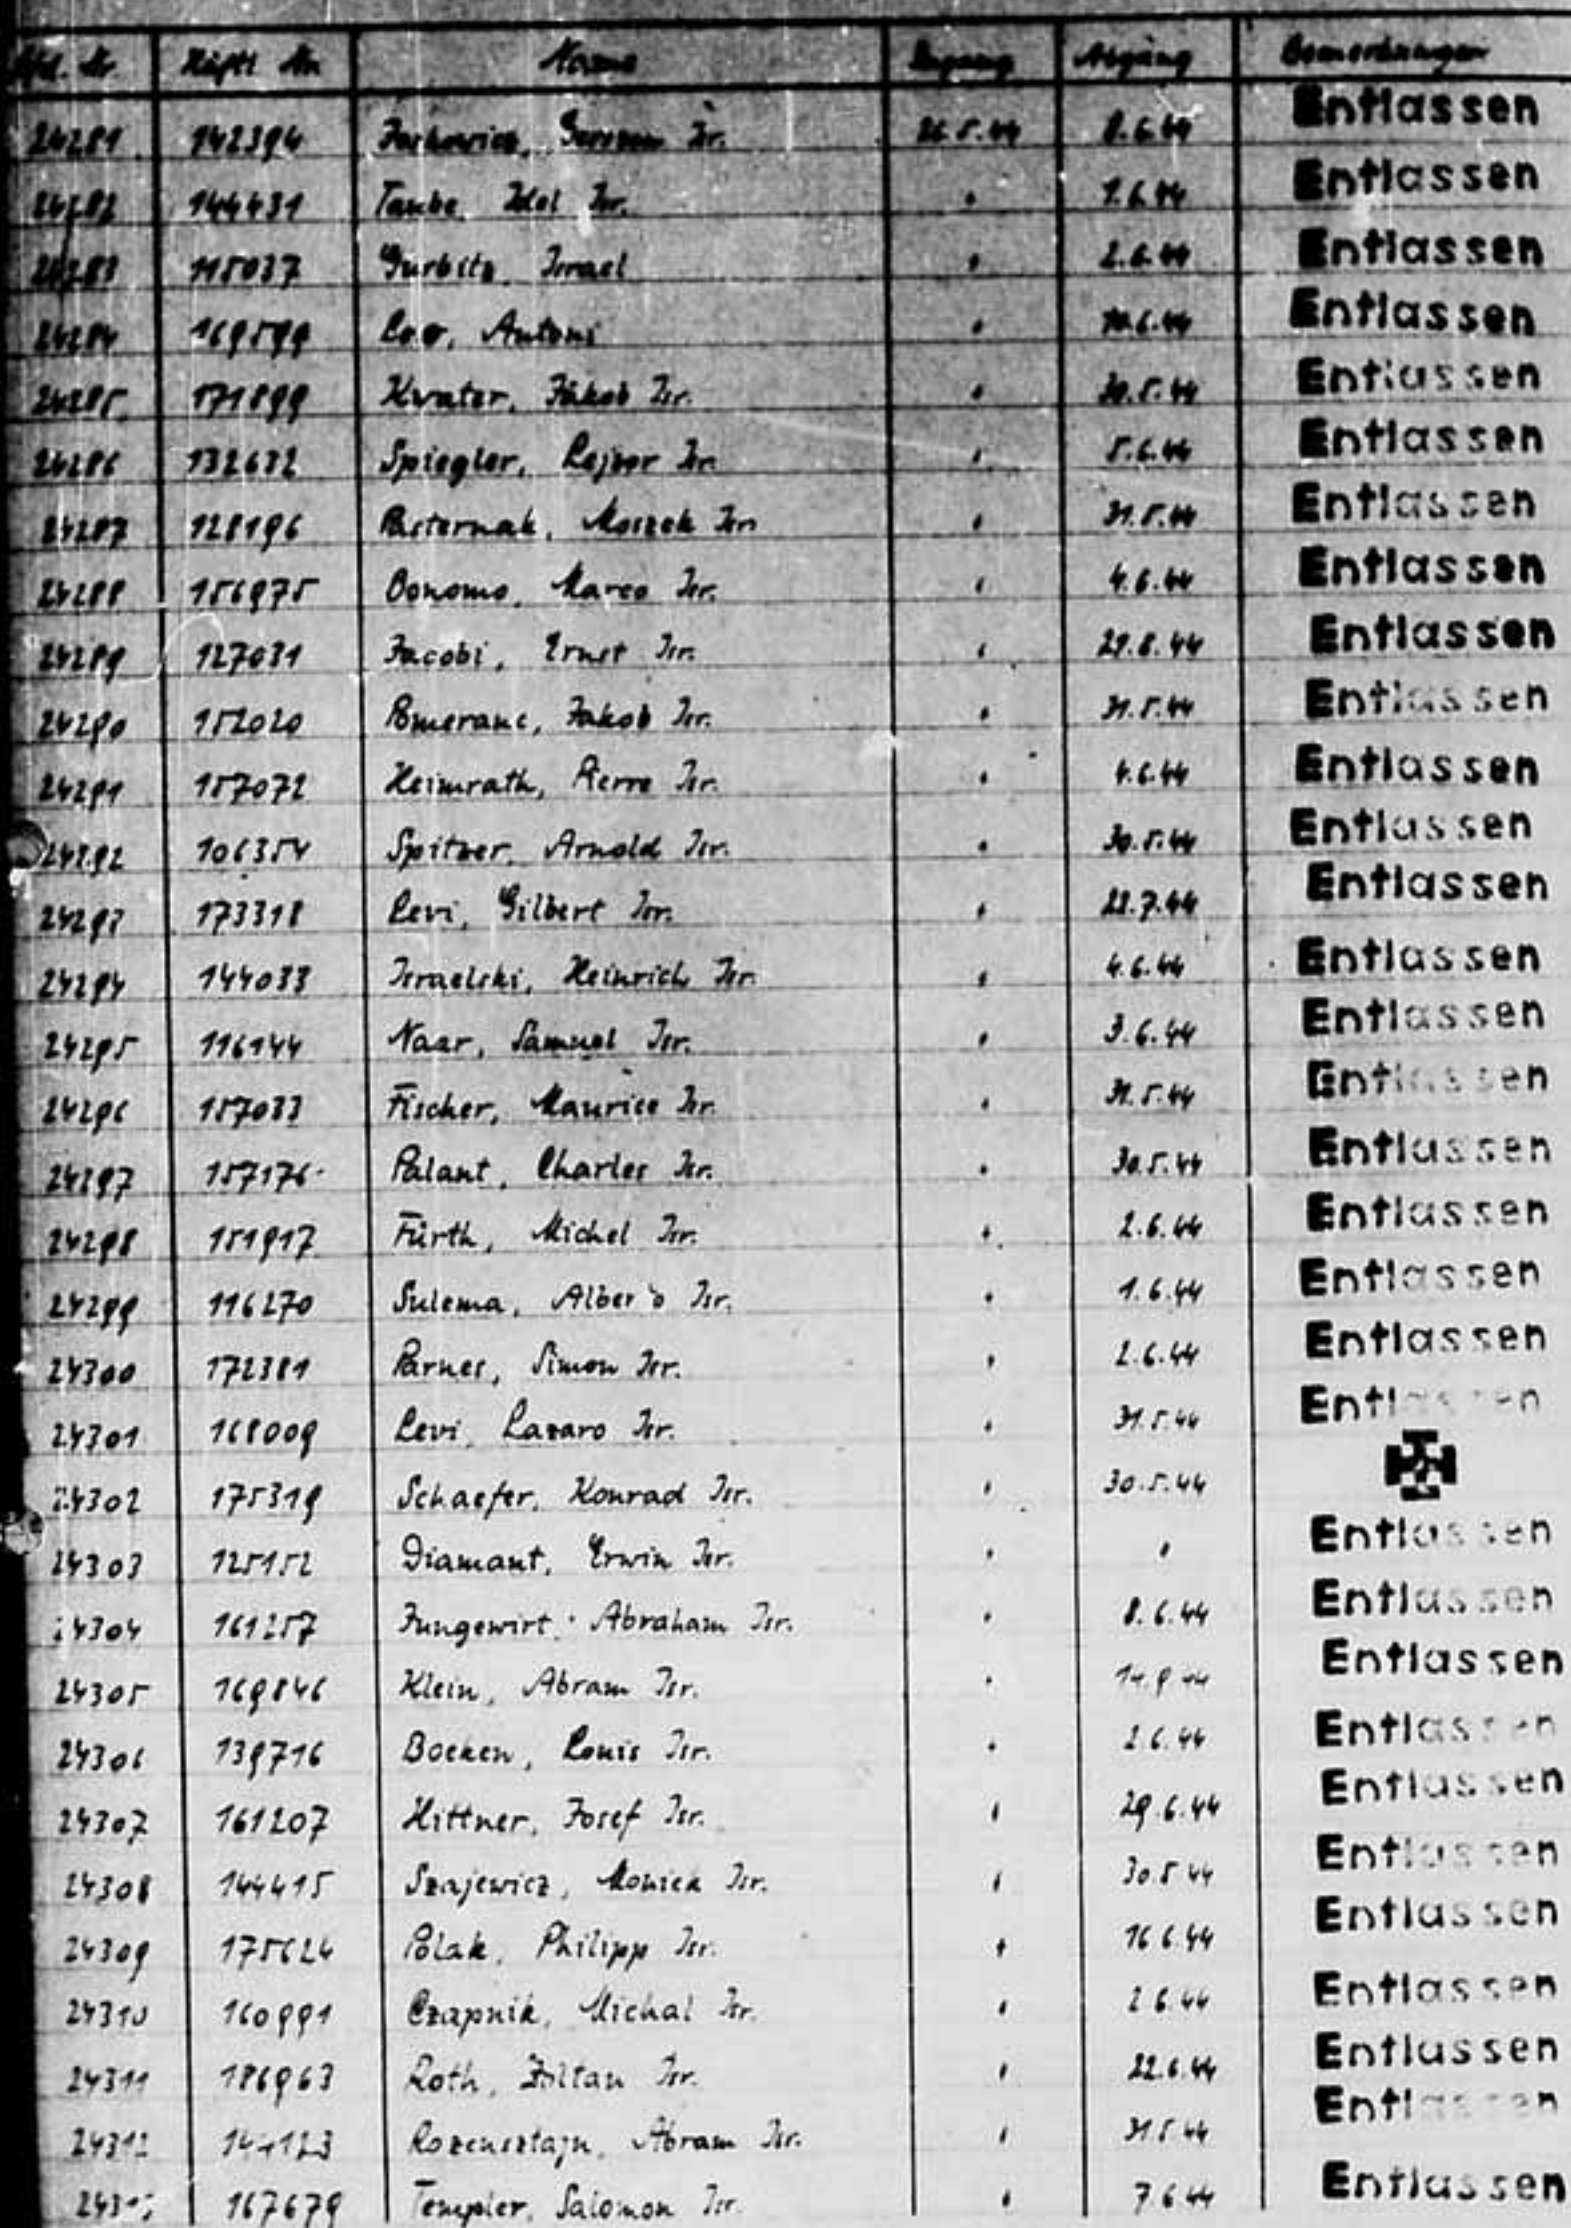 Lfd. Nr. Häftl. Nr. Name Zugang Abgang Bemerkungen
24281 142394 Isr. 26.5.44 8.6.44 Entlassen
24282 144431 Taube, Idel Isr. " 1.6.44 Entlassen
24283 115037 Gurbitz, Israel " 2.6.44 Entlassen
24284 169599 Antoni " Entlassen
24285 171899 Kwater, Jakob Isr. " 30.5.44 Entlassen
24286 132632 Spiegler, Isr. " 5.6.44 Entlassen
24287 128196 Pasternak, Moszek Isr. " 31.5.44 Entlassen
24288 156975 Bonomo, Marco Isr. " 4.6.44 Entlassen
24289 127031 Jacobi, Ernst Isr. " 29.8.44 Entlassen
24290 152020 Pomeranc, Jakob Isr. " 31.5.44 Entlassen
24291 157072 Heimrath, Pierre Isr. " 4.6.44 Entlassen
24292 106354 Spitzer, Arnold Isr. " 30.5.44 Entlassen
24293 173318 Levi, Gilbert Isr. " 22.7.44 Entlassen
24294 144033 Israelski, Heinrich Isr. " 4.6.44 Entlassen
24295 116144 Naar, Samuel Isr. " 3.6.44 Entlassen
24296 157033 Fischer, Maurice Isr. " 31.5.44 Entlassen
24297 157176 Palant, Charles Isr. " 30.5.44 Entlassen
24298 151917 Fürth, Michel Isr. " 2.6.44 Entlassen
24299 116270 Sulema, Alberto Isr. " 1.6.44 Entlassen
24300 172381 Parnes, Simon Isr. " 2.6.44 Entlassen
24301 168009 Levi, Lazaro Isr. " 31.5.44 Entlassen
24302 175319 Schaefer, Konrad Isr. " 30.5.44
24303 125152 Diamant, Erwin Isr. " " Entlassen
24304 161257 Jungewirt, Abraham Isr. " 8.6.44 Entlassen
24305 169846 Klein, Abram Isr. " 14.9.44 Entlassen
24306 139716 Boeken, Louis Isr. " 2.6.44 Entlassen
24307 161207 Hittner, Josef Isr. " 29.6.44 Entlassen
24308 144415 Szajewicz, Moniek Isr. " 30.5.44 Entlassen
24309 175624 Polak, Philipp Isr. " 16.6.44 Entlassen
24310 160991 Czapnik, Michal Isr. " 2.6.44 Entlassen
24311 186963 Roth, Zoltan Isr. " 22.6.44 Entlassen
24312 Rozensztajn, Abram Isr. " 31.5.44 Entlassen
167679 Templer, Salomon Isr. " 7.6.44 Entlassen